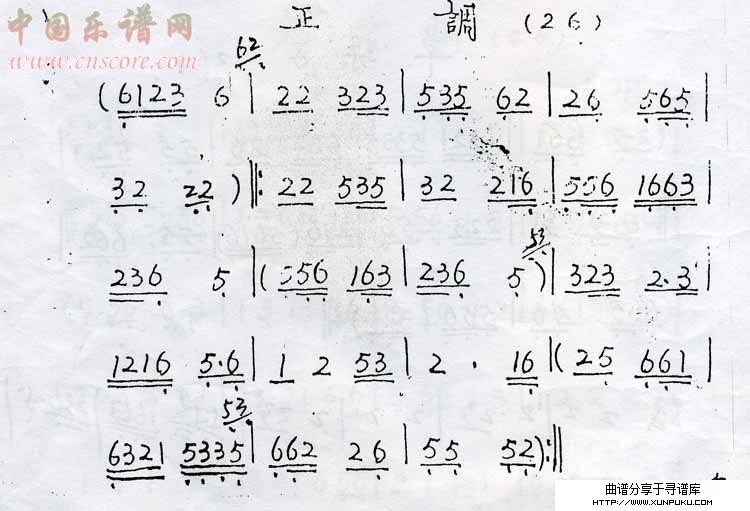 中国乐谱网 正 調 (26)
www.cnscore.com
62
(6123 6 | 22 323 | 535 62 | 26 565 |
32 22 ) ‖: 22 535 | 32 216 | 556 1663 |
53
236 5 |( 556 163 | 236 5 ) | 323 2·3 |
1216 5·6 | 1 2 53 | 2 · 16 |( 25 661 |
53
6321 5335 | 662 26 | 55 52 ):‖
曲谱分享于寻谱库
HTTP://WWW.XUNPUKU.COM